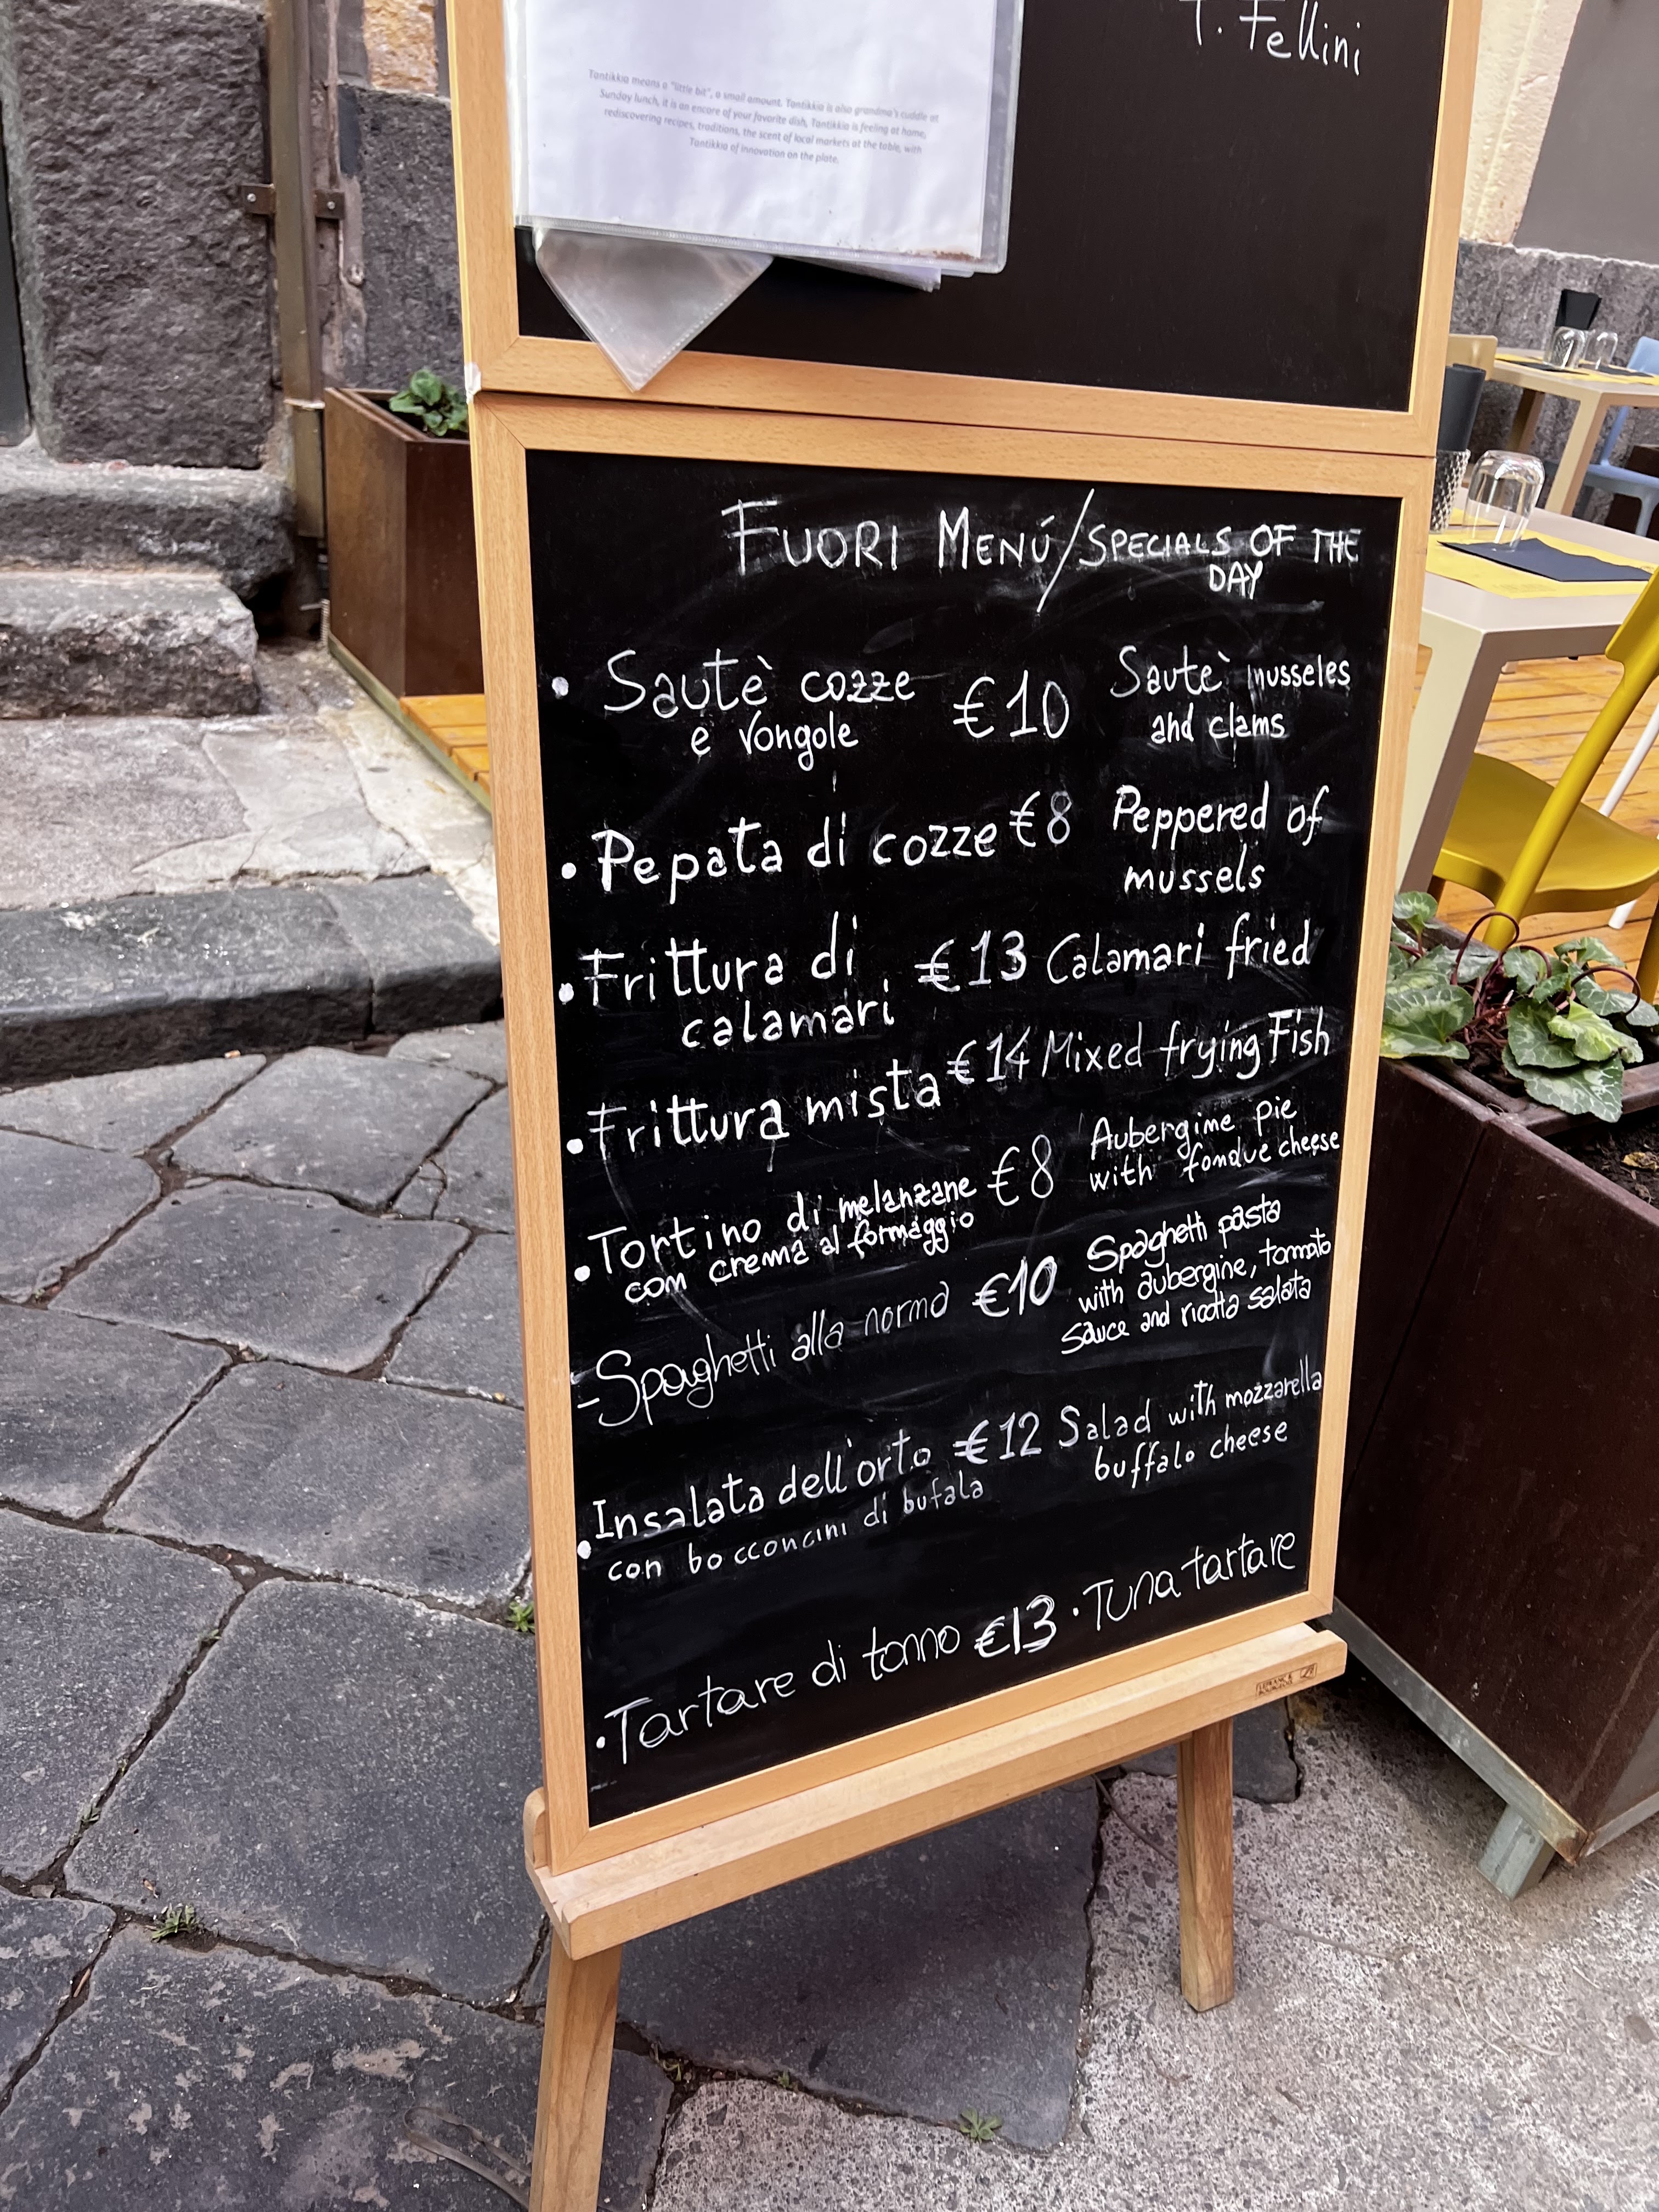 Tantikkia means a "little bit", a small amount. Tantikkia is also grandma's cuddle at
Sunday lunch, it is an encore of your favorite dish, Tantikkia is feeling at home,
rediscovering recipes, traditions, the scent of local markets at the table, with
Tantikkia of innovation on the plate.
Fellini
FUORI MENÚ/SPECIALS OF THE
DAY
• Sautè cozze €10 Sautè musseles
e vongole and clams
• Pepata di cozze €8 Peppered of
mussels
• Frittura di €13 Calamari fried
calamari
• Frittura mista €14 Mixed frying Fish
• Tortino di melanzane €8 Aubergime pie
com crema al formaggio with fondue cheese
- Spaghetti alla norma €10 Spaghetti pasta
with aubergine, tomato
sauce and ricotta salata
• Insalata dell'orto €12 Salad with mozzarella
con bocconcini di bufala buffalo cheese
• Tartare di tonno €13 • Tuna tartare